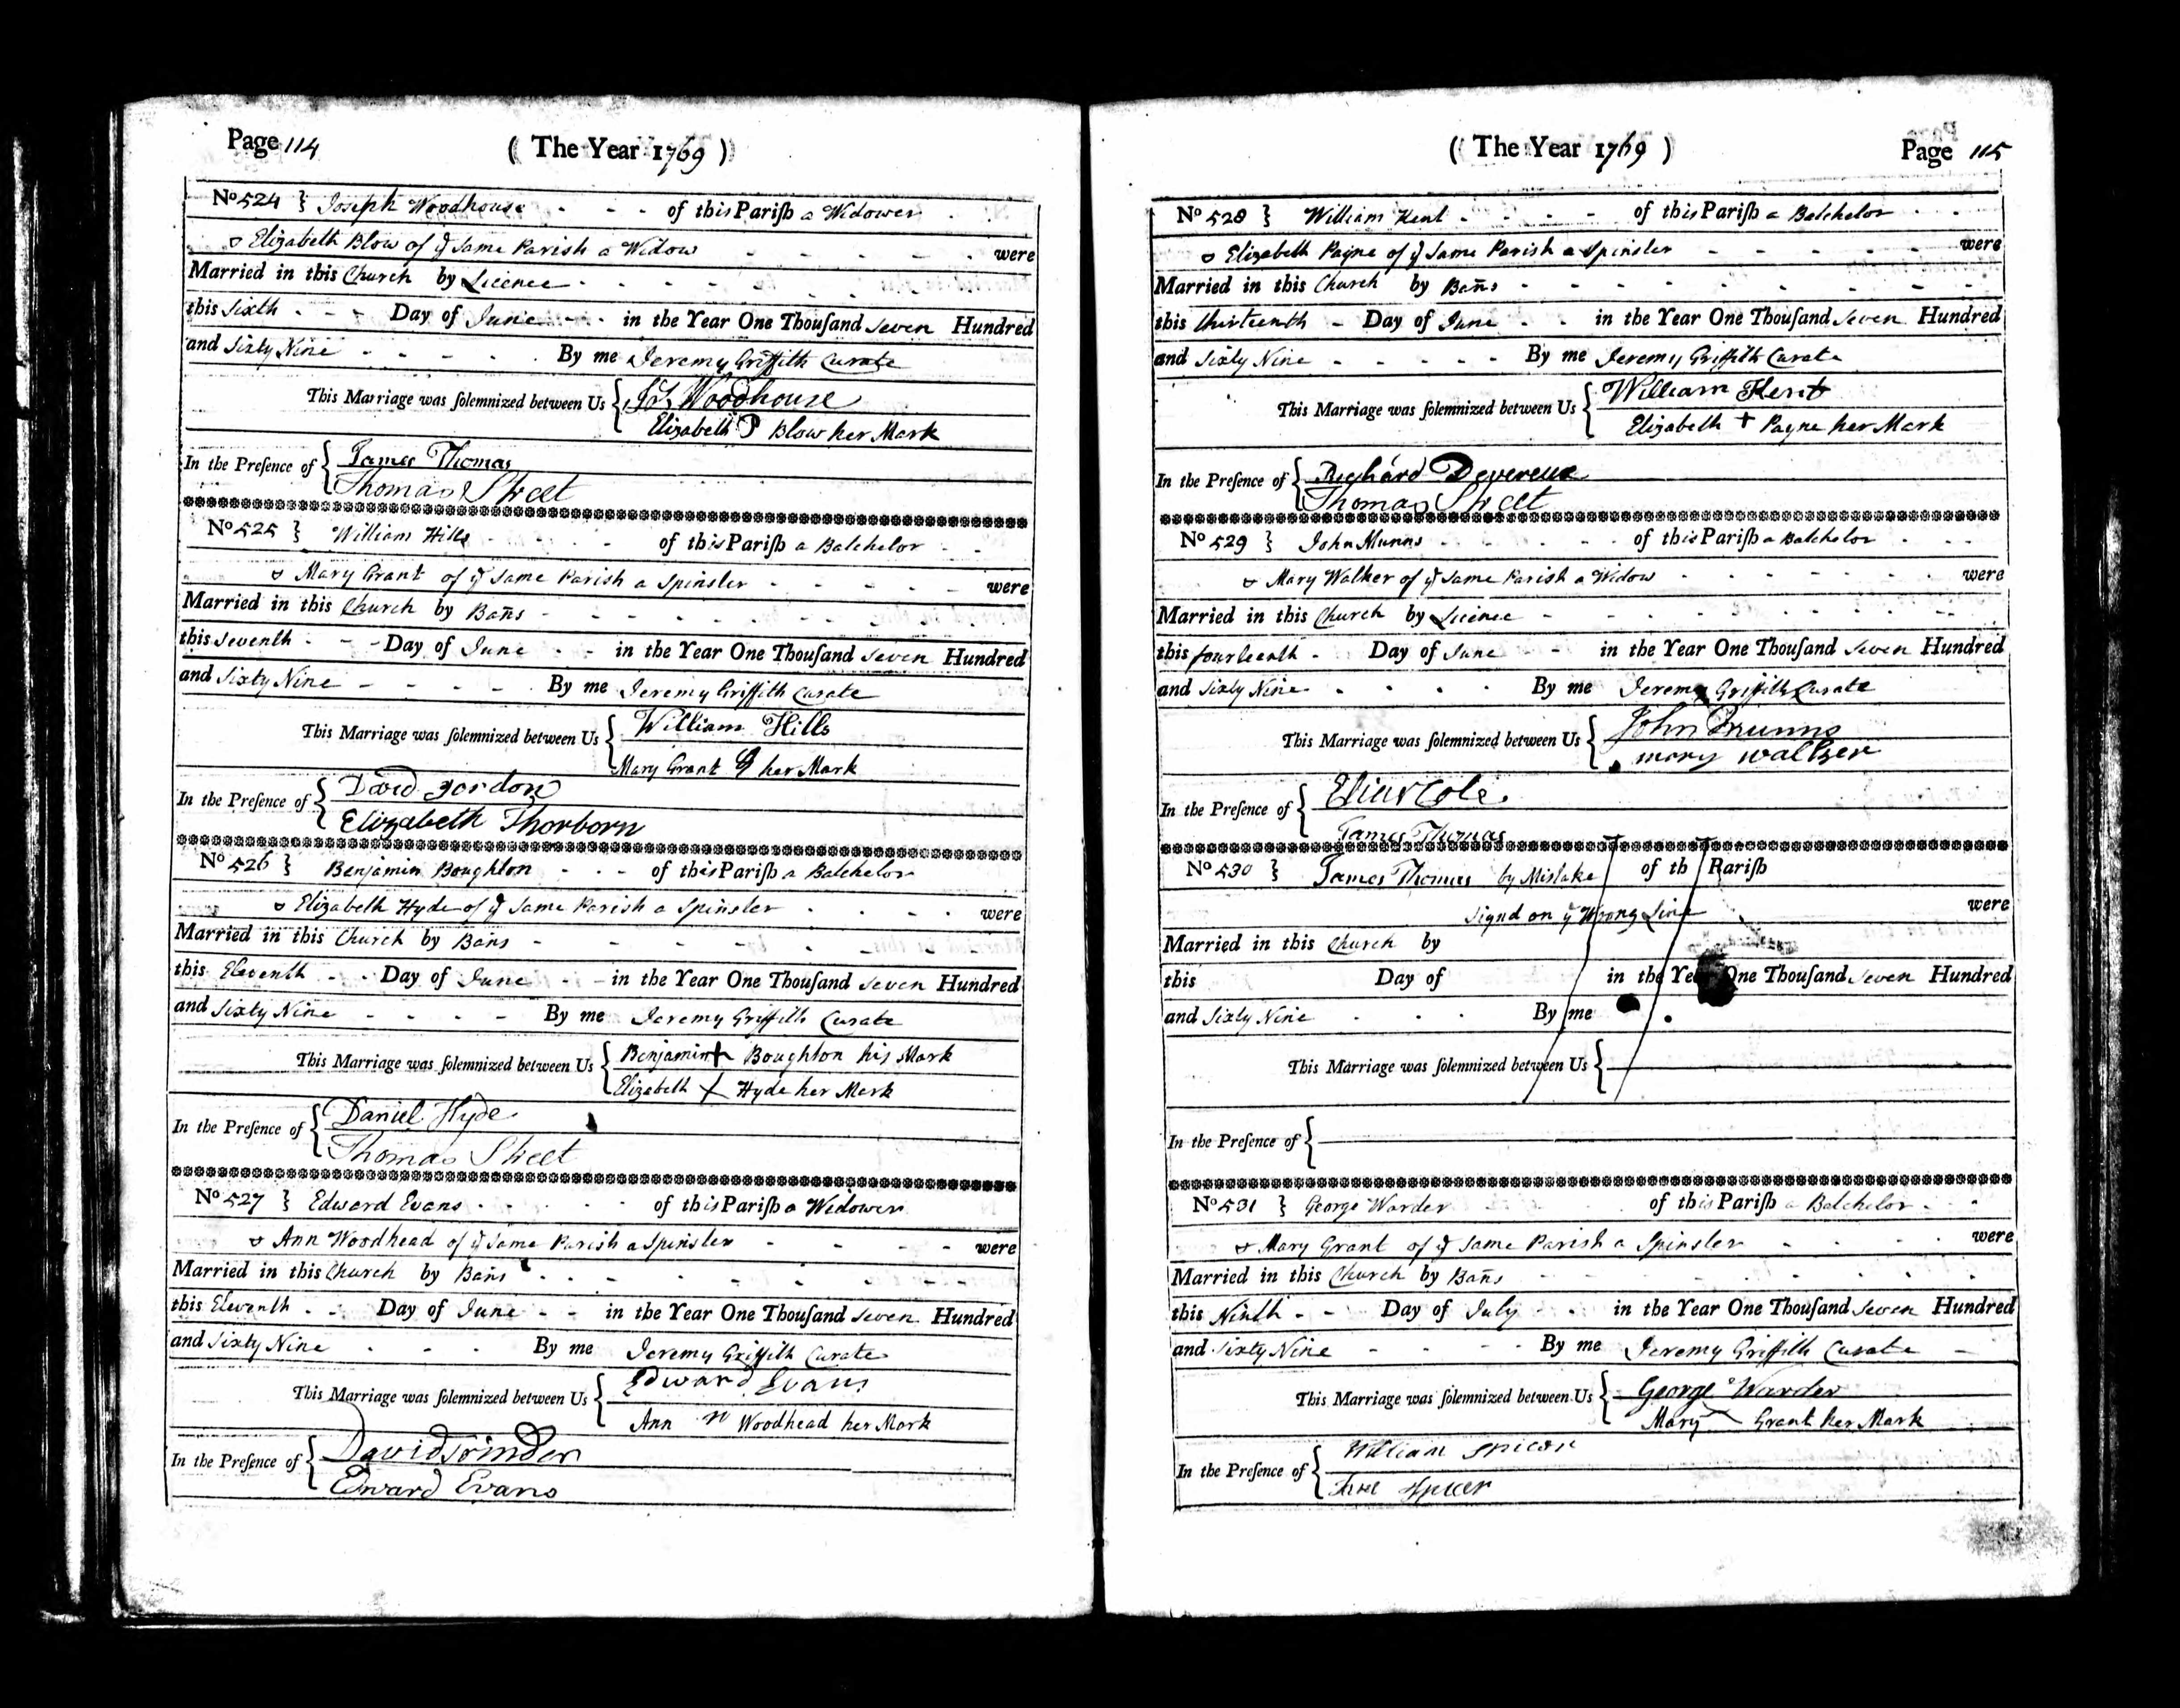 Page 114
( The Year 1769 )
No 524 } Joseph Woodhouse - - - of this Pariſh a Widower
& Elizabeth Blow of ye Same Parish a Widow - - - - - were
Married in this Church by Licence
this Sixth - - - Day of June - - - in the Year One Thouſand Seven Hundred
and Sixty Nine - - - - By me Jeremy Griffith Curate
This Marriage was ſolemnized between Us { Jos Woodhouse
Elizabeth P Blow her Mark
In the Preſence of { James Thomas
Thomas Street
No 525 } William Hills - - - - of this Pariſh a Batchelor
& Mary Grant of ye Same Parish a Spinster - - - - were
Married in this Church by Bans
this Seventh - - - Day of June - - in the Year One Thouſand Seven Hundred
and Sixty Nine - - - - By me Jeremy Griffith Curate
This Marriage was ſolemnized between Us { William Hills
Mary Grant her Mark
In the Preſence of { David gordon
Elizabeth Thorborn
No 526 } Benjamin Boughton - - - of this Pariſh a Batchelor
& Elizabeth Hyde of ye Same Parish a Spinster - - - - were
Married in this Church by Bans
this Eleventh - - Day of June - - - in the Year One Thouſand Seven Hundred
and Sixty Nine - - - - By me Jeremy Griffith Curate
This Marriage was ſolemnized between Us { Benjamin + Boughton his Mark
Elizabeth X Hyde her Mark
In the Preſence of { Daniel Hyde
Thomas Street
No 527 } Edward Evans - - - - of this Pariſh a Widower
& Ann Woodhead of ye Same Parish a Spinster - - - - were
Married in this Church by Bans
this Eleventh - - Day of June - - in the Year One Thouſand Seven Hundred
and Sixty Nine - - - By me Jeremy Griffith Curate
This Marriage was ſolemnized between Us { Edward Evans
Ann Woodhead her Mark
In the Preſence of { David
Edward Evans
( The Year 1769 ) Page 115
No 528 } William Kent - - - - of this Pariſh a Batchelor
& Elizabeth Payne of ye Same Parish a Spinster - - - - - were
Married in this Church by Bans
this thirteenth - Day of June - - in the Year One Thouſand Seven Hundred
and Sixty Nine - - - - - By me Jeremy Griffith Curate
This Marriage was ſolemnized between Us { William Kent
Elizabeth + Payne her Mark
In the Preſence of { Richard Devereux
Thomas Street
No 529 } John Munns - - - - - of this Pariſh a Batchelor
& Mary Walker of ye Same Parish a Widow - - - - - were
Married in this Church by Licence
this fourteenth - Day of June - - in the Year One Thouſand Seven Hundred
and Sixty Nine - - - - By me Jeremy Griffith Curate
This Marriage was ſolemnized between Us { John Munns
mary walker
In the Preſence of { Cole
James Thomas
No 530 } James Thomas by Mistake of th Pariſh
Signd on ye Wrong Line were
Married in this Church by
this Day of in the Year One Thouſand Seven Hundred
and Sixty Nine - - - By me
This Marriage was ſolemnized between Us {
In the Preſence of {
No 531 } George Warder of this Pariſh a Batchelor
& Mary Grant of ye Same Parish a Spinster - - - - were
Married in this Church by Bans
this Ninth - - Day of July - - in the Year One Thouſand Seven Hundred
and Sixty Nine - - - - By me Jeremy Griffith Curate
This Marriage was ſolemnized between Us { George Warder
Mary X Grant her Mark
In the Preſence of { William Spicer
Spicer